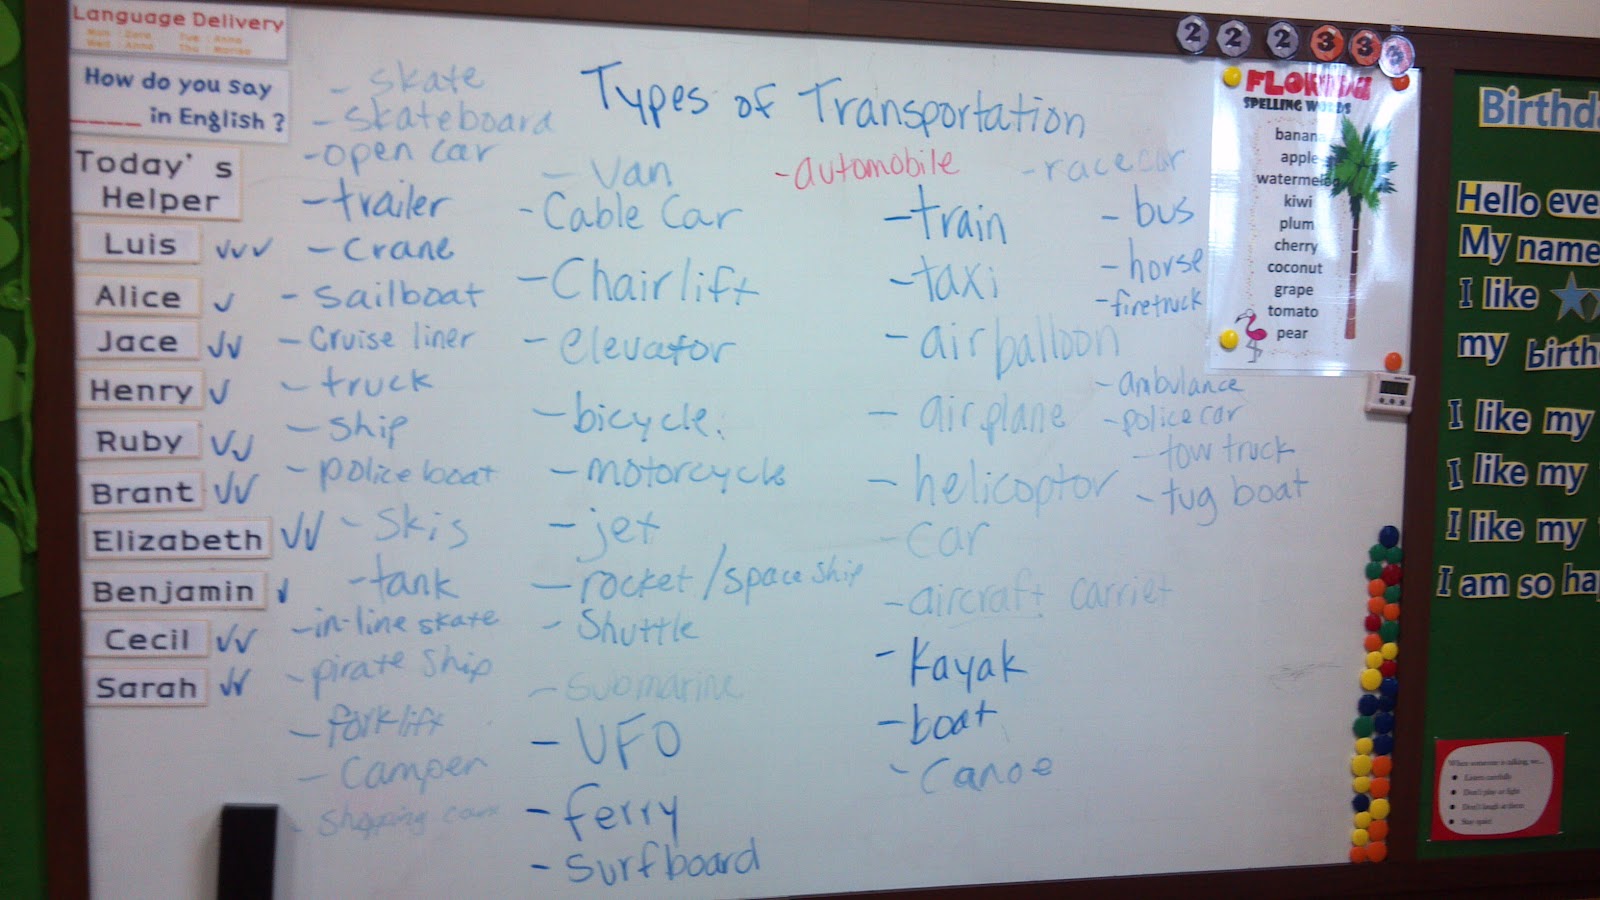 Language Delivery
How do you say
____ in English ?
Today's
Helper
Luis
Alice
Jace
Henry
Ruby
Brant
Elizabeth
Benjamin
Cecil
Sarah
Types of Transportation
- skate
- skateboard
- open car
- trailer
- crane
- sailboat
- cruise liner
- truck
- ship
- police boat
- skis
- tank
- in-line skate
- pirate ship
- forklift
- camper
- shopping
- van
- Cable Car
- Chair lift
- elevator
- bicycle
- motorcycle
- jet
- rocket/space ship
- Shuttle
- submarine
- UFO
- ferry
- surfboard
- automobile
- train
- taxi
- air balloon
- airplane
- helicoptor
- car
- aircraft carrier
- kayak
- boat
- canoe
- race car
- bus
- horse
- firetruck
- ambulance
- police car
- tow truck
- tug boat
2
2
2
3
3
SPELLING WORDS
banana
apple
watermelon
kiwi
plum
cherry
coconut
grape
tomato
pear
Birthd
Hello eve
My name
I like
my birth
I like my
I like my
I like my
I am so ha
When someone is talking, we...
Listen carefully
Don't play or fight
Don't laugh at them
Stay quiet